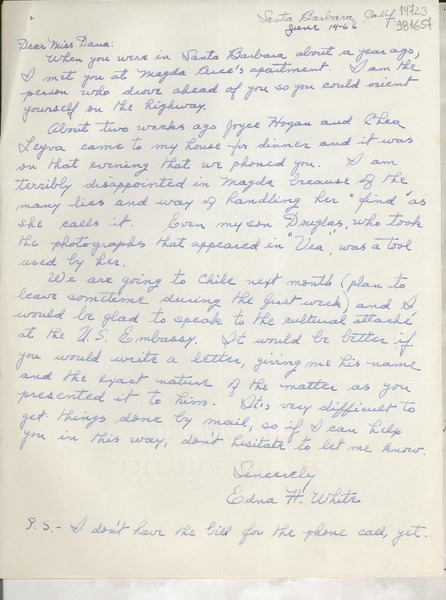 14723
981657
Santa Barbara, Calif.
June 14-66
Dear Miss Dana:
When you were in Santa Barbara about a year ago,
I met you at Magda Arce's apartment. I am the
person who drove ahead of you so you could orient
yourself on the highway.
About two weeks ago Joyce Hogan and Chea
Leyva came to my house for dinner and it was
on that evening that we phoned you. I am
terribly disappointed in Magda because of the
many lies and way of handling her "find" as
she calls it. Even my son Douglas, who took
the photographs that appeared in "Vea", was a tool
used by her.
We are going to Chile next month (plan to
leave sometime during the first week) and I
would be glad to speak to the cultural attaché
at the U.S. Embassy. It would be better if
you would write a letter, giving me his name
and the exact nature of the matter as you
presented it to him. It's very difficult to
get things done by mail, so if I can help
you in this way, don't hesitate to let me know.
Sincerely
Edna H. White
P.S. - I don't have the bill for the phone call, yet.